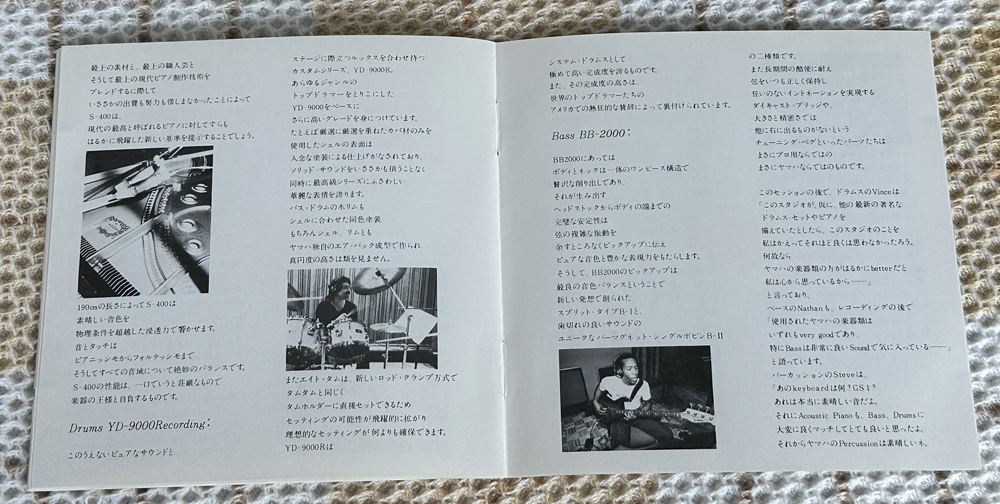 最上の素材と、最上の職人芸と
そうして最上の現代ピアノ制作技術を
ブレンドするに際して
いささかの出費も努力も惜しまなかったことによって
S-400は、
現代の最高と呼ばれるピアノに対してすらも
はるかに飛躍した新しい基準を提示することでしょう。
190cmの長さによってS-400は
素晴しい音色を
物理条件を超越した浸透力で響かせます。
音とタッチは
ピアニッシモからフォルテッシモまで
そうしてすべての音域について絶妙のバランスです。
S-400の性能は、一口でいうと荘厳なもので
楽器の王様と自負するものです。
Drums YD-9000Recording:
このうえないピュアなサウンドと
ステージに際立つルックスを合わせ持つ
カスタムシリーズ、YD-9000R。
あらゆるジャンルの
トップドラマーをとりこにした
YD-9000をベースに
さらに高いグレードを身につけています。
たとえば厳選に厳選を重ねたカバ材のみを
使用したシェルの表面は
入念な塗装による仕上げがなされており、
ソリッド・サウンドをいささかも損うことなく
同時に最高級シリーズにふさわしい
華麗な表情を誇ります。
バス・ドラムの木リムも
シェルに合わせた同色塗装
もちろんシェル、リムとも
ヤマハ独自のエア・バック成型で作られ
真円度の高さは類を見ません。
またエイト・タムは、新しいロッド・クランプ方式で
タムタムと同じく
タムホルダーに直接セットできるため
セッティングの可能性が飛躍的に拡がり
理想的なセッティングが何よりも確保できます。
YD-9000Rは
システム・ドラムスとして
極めて高い完成度を誇るものです。
また、その完成度の高さは、
世界のトップドラマーたちの
アメリカでの熱狂的な賛辞によって裏付けられています。
Bass BB-2000:
BB2000にあっては
ボディとネックは一体のワンピース構造で
贅沢な削り出しであり、
それが生み出す
ヘッドストックからボディの端までの
完璧な安定性は
弦の複雑な振動を
余すところなくピックアップに伝え
ピュアな音色と豊かな表現力をもたらします。
そうして、BB2000のピックアップは
最良の音色バランスということで
新しい発想で創られた
スプリット・タイプB-Iと、
歯切れの良いサウンドの
ユニークなバーマグネット・シングルボビンB-II
の二種類です。
また長期間の酷使に耐え
弦をいつも正しく保持し
狂いのないイントネーションを実現する
ダイキャスト・ブリッジや、
大きさと精密さでは
他に右に出るものがないという
チューニング・ペグといったパーツたちは
まさにプロ用ならではの
まさにヤマハならではのものです。
このセッションの後で、ドラムスのVinceは
「このスタジオが、仮に、他の最新の著名な
ドラムス・セットやピアノを
備えていたとしたら、このスタジオのことを
私はかえってそれほど良くは思わなかったろう。
何故なら
ヤマハの楽器類の方がはるかにbetterだと
私は心から思っているから――」
と言っており、
ベースのNathanも、レコーディングの後で
「使用されたヤマハの楽器類は
いずれもvery goodであり、
特にBassは非常に良いSoundで気に入っている――」
と語っています。
パーカッションのSteveは、
「あのkeyboardは何？GS1？
あれは本当に素晴しい音だよ。
それにAcoustic Pianoも、Bass、Drumsに
大変に良くマッチしてとても良いと思ったよ。
それからヤマハのPercussionは素晴しいネ。